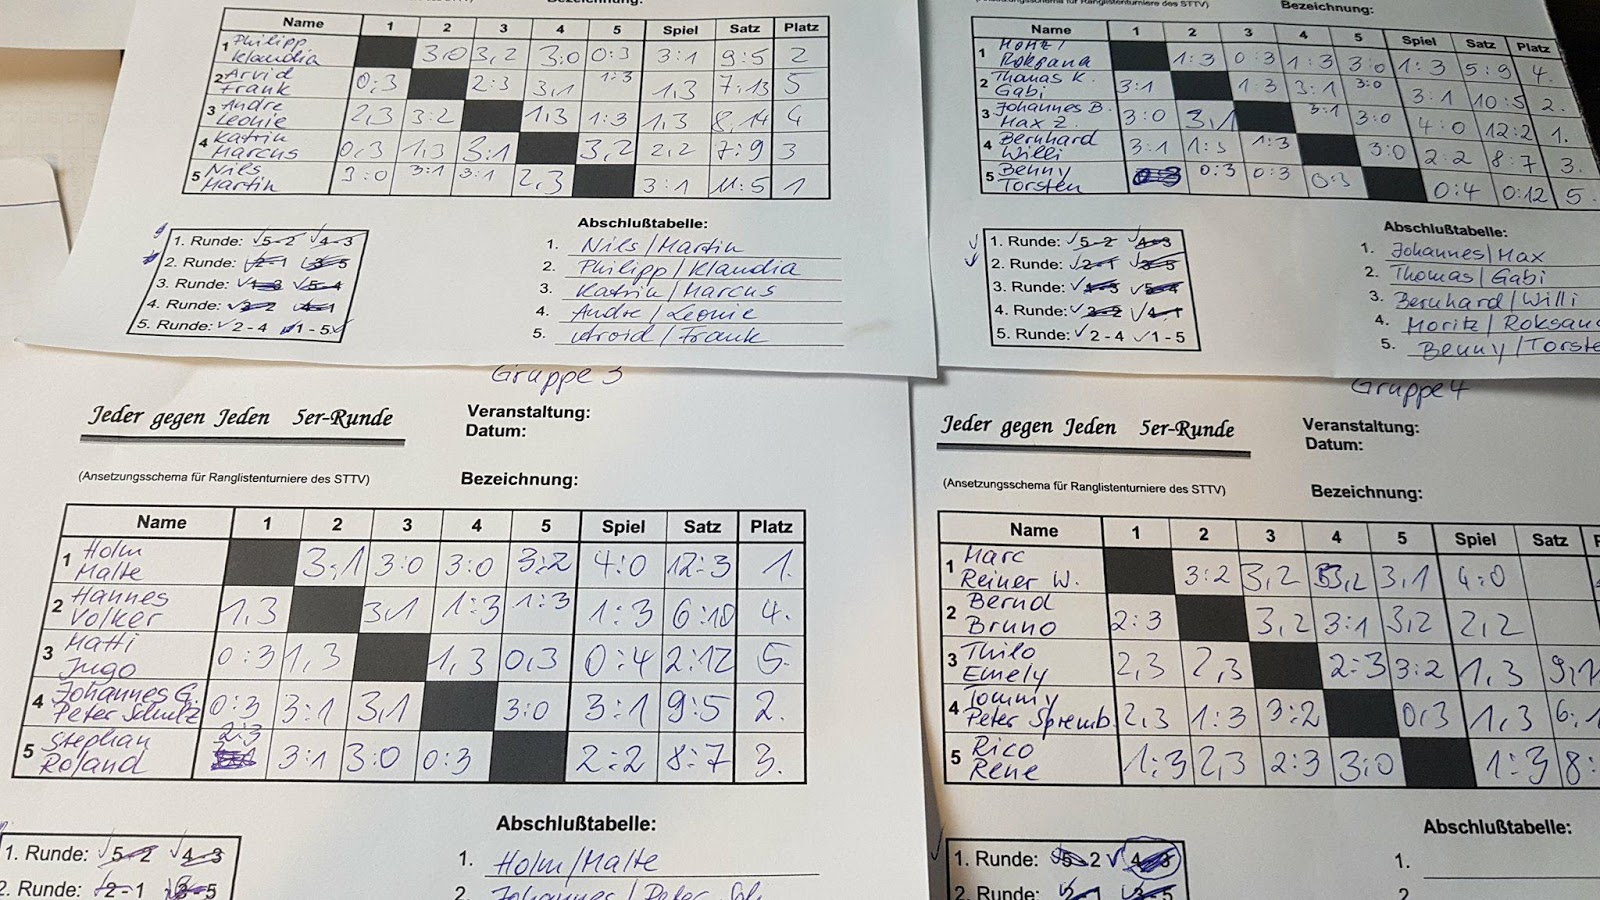 Bezeichnung:
Name 1 2 3 4 5 Spiel Satz Platz
1 Philipp Klaudia 3:0 3,2 3:0 0:3 3:1 9:5 2
2 Arvid Frank 0:3 2:3 3,1 1:3 1,3 7:13 5
3 Andre Leonie 2,3 3:2 1,3 1:3 1,3 8,14 4
4 Katrin Marcus 0,3 1,3 3:1 3,2 2,2 7:9 3
5 Nils Martin 3:0 3:1 3:1 2,3 3:1 11:5 1
1. Runde: 5-2 4-3
2. Runde: 2-1 3-5
3. Runde: 1-3 5-4
4. Runde: 3-2 4-1
5. Runde: 2-4 1-5
Abschlußtabelle:
1. Nils/Martin
2. Philipp/Klaudia
3. Katrin/Marcus
4. Andre/Leonie
5. Arvid/Frank
(Ansetzungsschema für Ranglistenturniere des STTV)
Bezeichnung:
Name 1 2 3 4 5 Spiel Satz Platz
1 Moritz/ Roksana 1:3 0:3 1:3 3:0 1:3 5:9 4.
2 Thomas K. Gabi 3:1 1:3 3:1 3:0 3:1 10:5 2.
3 Johannes B. Max Z. 3:0 3,1 3:1 3:0 4:0 12:2 1.
4 Bernhard Willi 3:1 1:3 1:3 3:0 2:2 8:7 3.
5 Benny Torsten 0:3 0:3 0:3 0:3 0:4 0:12 5.
1. Runde: 5-2 4-3
2. Runde: 2-1 3-5
3. Runde: 1-3 5-4
4. Runde: 3-2 4-1
5. Runde: 2-4 1-5
Abschlußtabelle:
1. Johannes/Max
2. Thomas/Gabi
3. Bernhard/Willi
4. Moritz/Roksana
5. Benny/Torste
Gruppe 3
Jeder gegen Jeden 5er-Runde
Veranstaltung:
Datum:
(Ansetzungsschema für Ranglistenturniere des STTV)
Bezeichnung:
Name 1 2 3 4 5 Spiel Satz Platz
1 Holm Malte 3:1 3:0 3:0 3:2 4:0 12:3 1.
2 Hannes Volker 1,3 3,1 1:3 1:3 1:3 6:10 4.
3 Matti Ingo 0:3 1,3 1,3 0,3 0:4 2:12 5.
4 Johannes G. Peter Schulz 0:3 3:1 3,1 3:0 3:1 9:5 2.
5 Stephan Roland 2:3 3:1 3:0 0:3 2:2 8:7 3.
1. Runde: 5-2 4-3
2. Runde: 2-1 3-5
Abschlußtabelle:
1. Holm/Malte
2. Johannes/Peter Sch
Gruppe 4
Jeder gegen Jeden 5er-Runde
Veranstaltung:
Datum:
(Ansetzungsschema für Ranglistenturniere des STTV)
Bezeichnung:
Name 1 2 3 4 5 Spiel Satz P
1 Marc Reiner W. 3:2 3,2 3,2 3,1 4:0
2 Bernd Bruno 2:3 3,2 3:1 3,2 2,2
3 Thilo Emely 2,3 2,3 2:3 3:2 1,3 9,1
4 Tommy Peter Spremb. 2,3 1:3 3:2 0,3 1,3 6,1
5 Rico Rene 1:3 2,3 2:3 3:0 1:3 8:
1. Runde: 5-2 4-3
2. Runde: 2-1 3-5
Abschlußtabelle:
1.
2